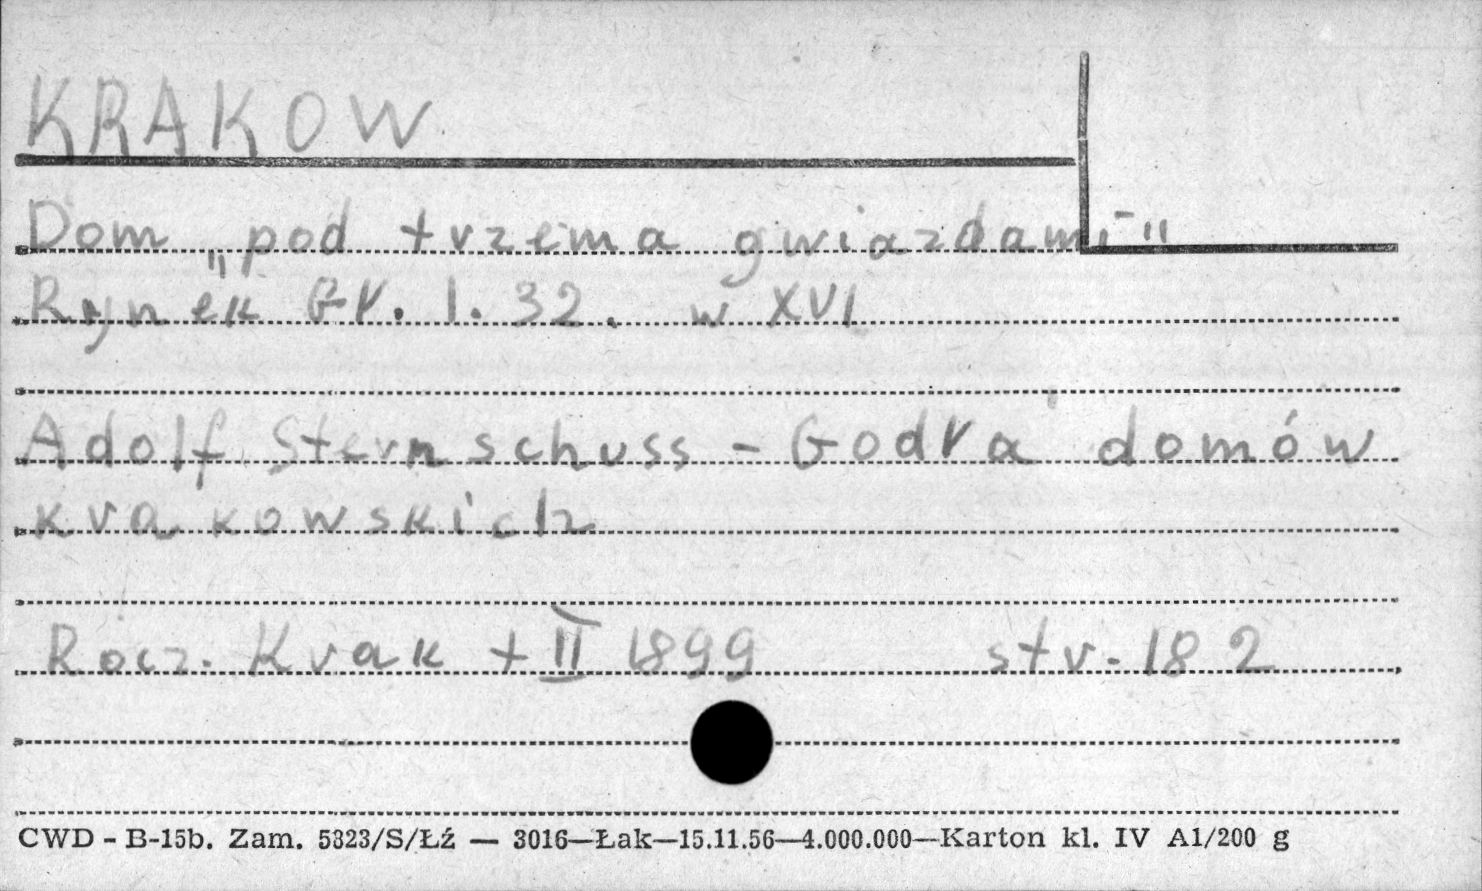 KRAKOW
Dom „pod trzema gwiazdami"
Rynek Gł. l. 32. w XVI
Adolf Sternschuss - Godła domów
krakowskich
Rocz. Krak t II 1899 str. 182
CWD - B-15b. Zam. 5323/S/Łź — 3016—Łak—15.11.56—4.000.000—Karton kl. IV A1/200 g